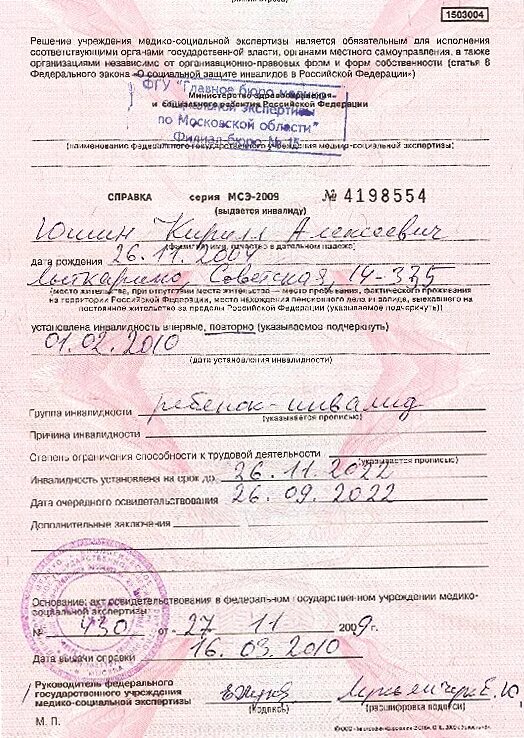 1503004
Решение учреждения медико-социальной экспертизы является обязательным для исполнения
соответствующими органами государственной власти, органами местного самоуправления, а также
организациями независимо от организационно-правовых форм и форм собственности (статья 8
Федерального закона «О социальной защите инвалидов в Российской Федерации»)
ФГУ "Главное бюро медико-
Министерство здравоохранения
социальной экспертизы
и социального развития Российской Федерации
по Московской области"
Филиал бюро №
(наименование федерального государственного учреждения медико-социальной экспертизы)
СПРАВКА серия МСЭ-2009 № 4198554
(выдается инвалиду)
Юшин Кирилл Алексеевич
(фамилия, имя, отчество в дательном падеже)
дата рождения 26.11.2004
Лыткарино Советская 14-335
(место жительства, при отсутствии места жительства — место пребывания, фактического проживания
на территории Российской Федерации, место нахождения пенсионного дела инвалида, выехавшего на
постоянное жительство за пределы Российской Федерации (указываемое подчеркнуть))
установлена инвалидность впервые, повторно (указываемое подчеркнуть)
01.02.2010
(дата установления инвалидности)
Группа инвалидности ребенок-инвалид
(указывается прописью)
Причина инвалидности
Степень ограничения способности к трудовой деятельности
(указывается прописью)
Инвалидность установлена на срок до 26.11.2022
Дата очередного освидетельствования 26.09.2022
Дополнительные заключения
Основание: акт освидетельствования в федеральном государственном учреждении медико-
социальной экспертизы
№ 430 от 27 11 2009г.
Дата выдачи справки 16.03.2010
Руководитель федерального
государственного учреждения
медико-социальной экспертизы
(подпись) (расшифровка подписи)
М. П.